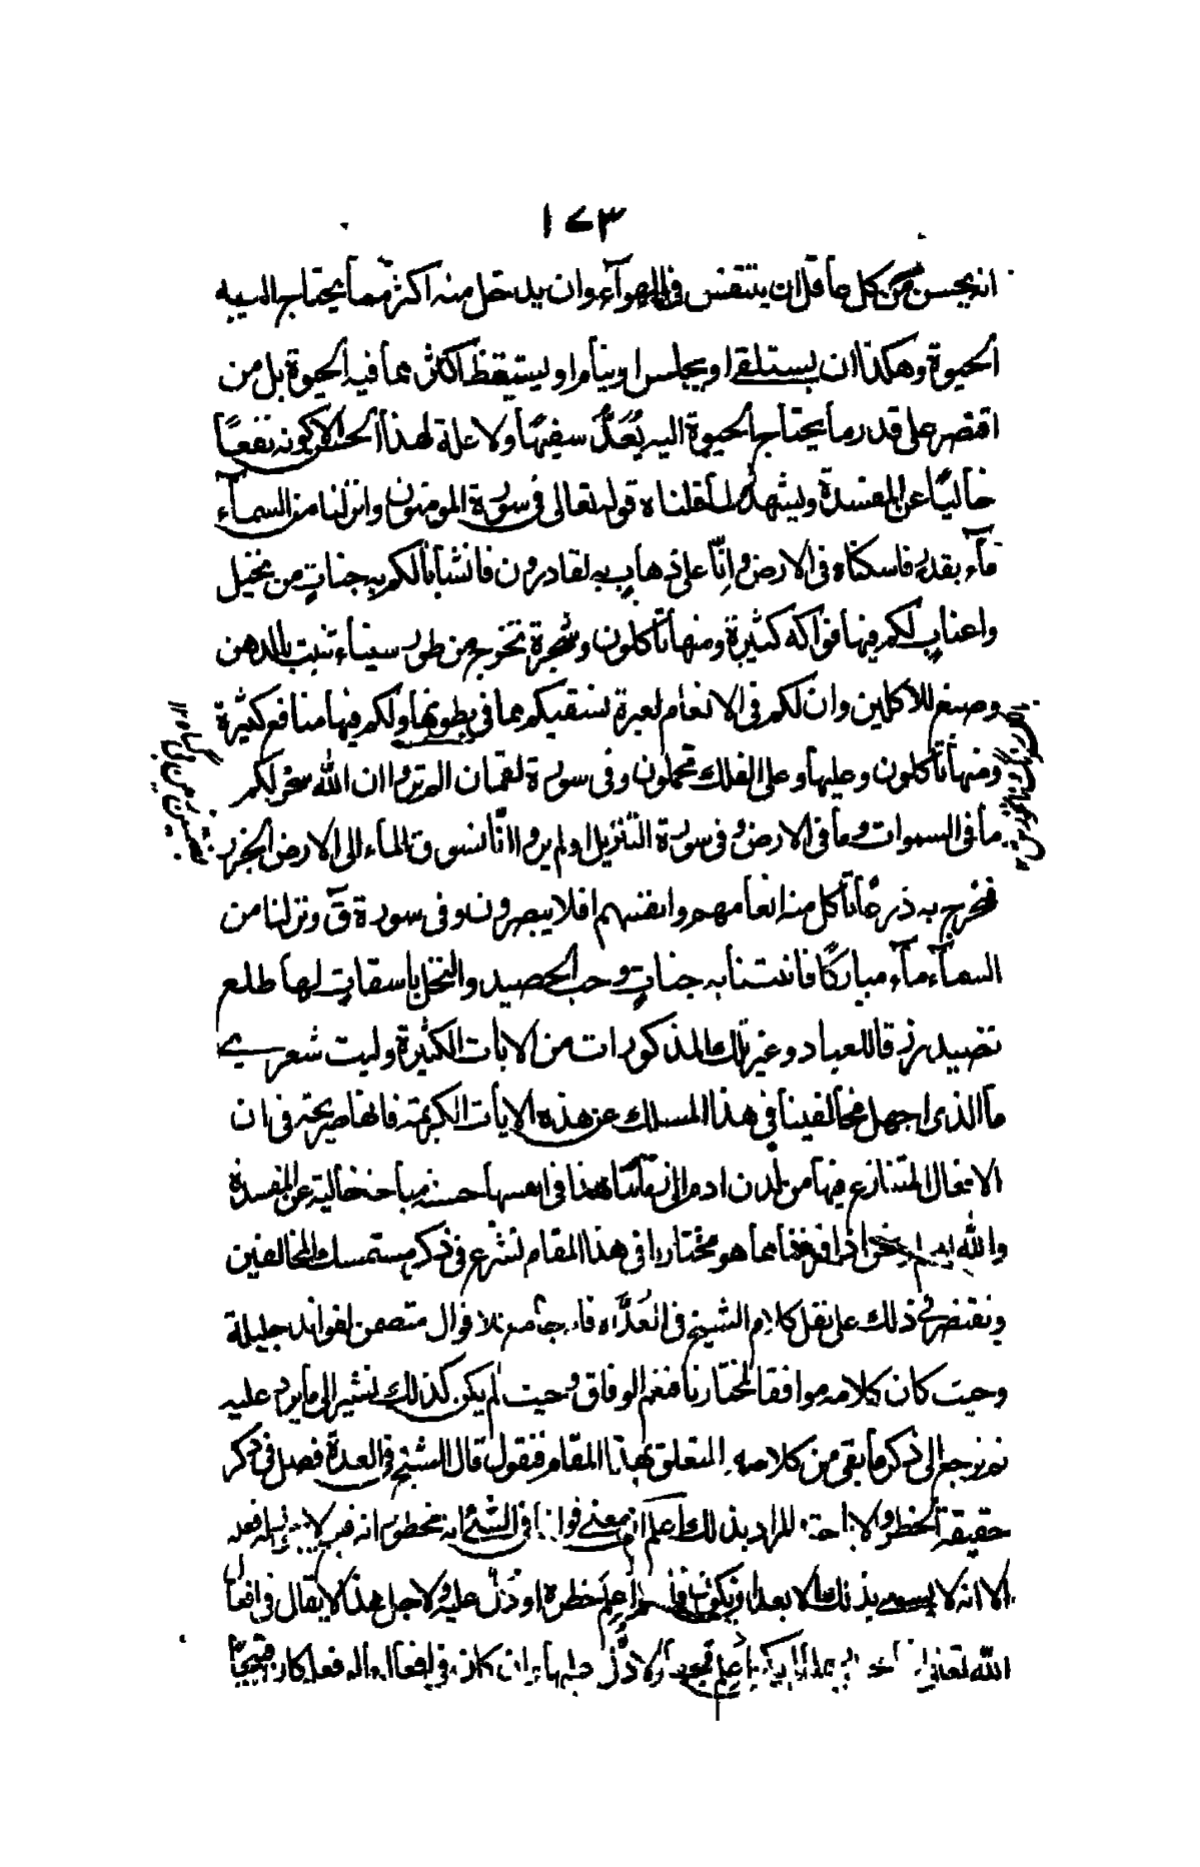 ١٧٣
انه يحسن من كل عاقل ان يتنفس فى الهوآء وان يدخل منه اكثر مما يحتاج اليه
الحيوة وهكذا ان يستلقى او يجلس او ينام او يستيقظ اكثر مما فيه الحيوة بل من
اقتصر على قدر ما يحتاج الحيوة اليه يُعَدُّ سفيهًا ولا علة لهذا الحسن الا كونه نفعًا
خاليًا عن المفسدة ويشهد لما قلناه قوله تعالى فى سورة المومنون وانزلنا من السمآء
مآء بقدر فاسكناه فى الارض وانّا على ذهابٍ به لقادرون فانشأنا لكم به جناتٍ من نخيل
واعنابٍ لكم فيها فواكه كثيرة ومنها تأكلون وشجرة تخرج من طور سيناء تنبت بالدهن
وصبغ للاكلين وان لكم فى الانعام لعبرة نسقيكم مما فى بطونها ولكم فيها منافع كثيرة
ومنها تأكلون وعليها وعلى الفلك تحملون وفى سورة لقمان الم تروا ان الله سخر لكم
ما فى السموات وما فى الارض وفى سورة التنزيل اولم يروا انّا نسوق الماء الى الارض الجرز
فنخرج به زرعًا تأكل منه انعامهم وانفسهم افلا يبصرون وفى سورة قٓ ونزلنا من
السمآء مآء مباركًا فانبتنا به جناتٍ وحب الحصيد والنخل باسقاتٍ لها طلع
نضيد رزقا للعباد وغير تلك المذكورات من الايات الكثيرة وليت شعرى
ما الذى اجهل مخالفينا فى هذا المسلك عن هذه الايات الكريمة فانها صريحة فى ان
الافعال المتنازع فيها من لدن ادم الى زماننا هذا فى انفسها حسنة مباحة خالية عن المفسدة
والله اذا فرغنا مما هو مختارنا فى هذا المقام لنشرع فى ذكر مستمسك المخالفين
ونقتصر فى ذلك على نقل كلام الشيخ فى العُدَّة فانه جامع للاقوال متضمن لفوائد جليلة
وحيث كان كلامه موافقا لمختارنا فنعم الوفاق وحيث لم يكن كذلك نشير الى ما يرد عليه
ثم نرجع الى ذكر ما بقى من كلامه المتعلق بهذا المقام فنقول قال الشيخ فى العدة فصل فى ذكر
حقيقة الحظر والاباحة المراد بذلك اعلم ان معنى قولنا فى الشئ انه محظور انه قبيح لا يجوز له فعله
الا انه لا يسمى بذلك الا بعد ان يكون فاعله اعلم حظره او دُلّ عليه ولاجل هذا لا يقال فى افعال
الله تعالى اعلم قبحها ولا دُلّ عليها وان كان فى افعاله ما لو فعله كان قبيحًا